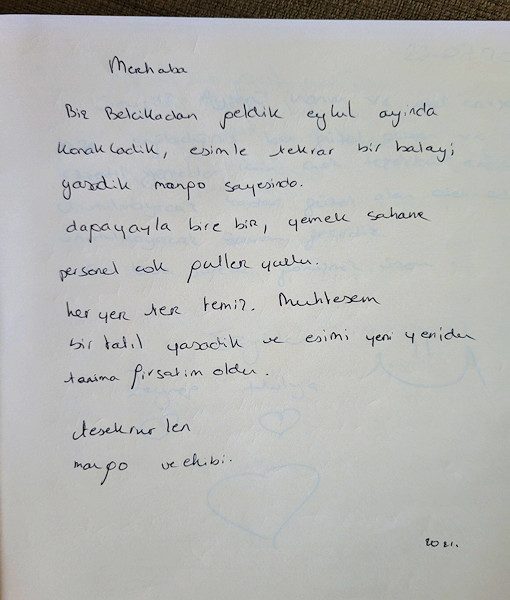 Merhaba
Biz Belcikadan geldik eylul ayinda
konakladik, esimle tekrar bir balayi
yasadik manpo sayesinde.
dapayayla bire bir, yemek sahane
personel cok guller yuzlu.
her yer ter temiz. Muhtesem
bir tatil yasadik ve esimi yeni yeniden
tanima firsatim oldu.
tesekkur ler
manpo ve ekibi.
2021.